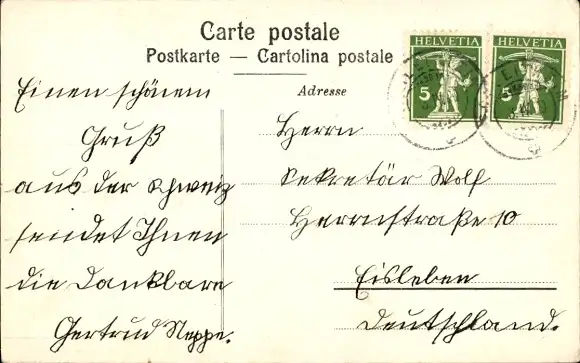 Carte postale
Postkarte — Cartolina postale
HELVETIA
HELVETIA
5
5
Einen schönen
Gruß
aus der Schweiz
sendet Ihnen
die Dankbare
Gertrud Neppe.
Adresse
Herrn
Sekretär Wolf
Herrnstraße 10
Eisleben
Deutschland.